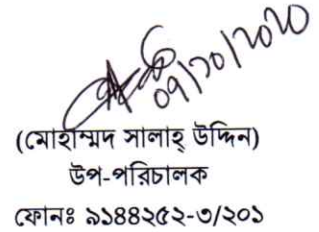 09/10/2020
(মোহাম্মদ সালাহ্ উদ্দিন)
উপ-পরিচালক
ফোনঃ ৯১৪৪২৫২-৩/২০১